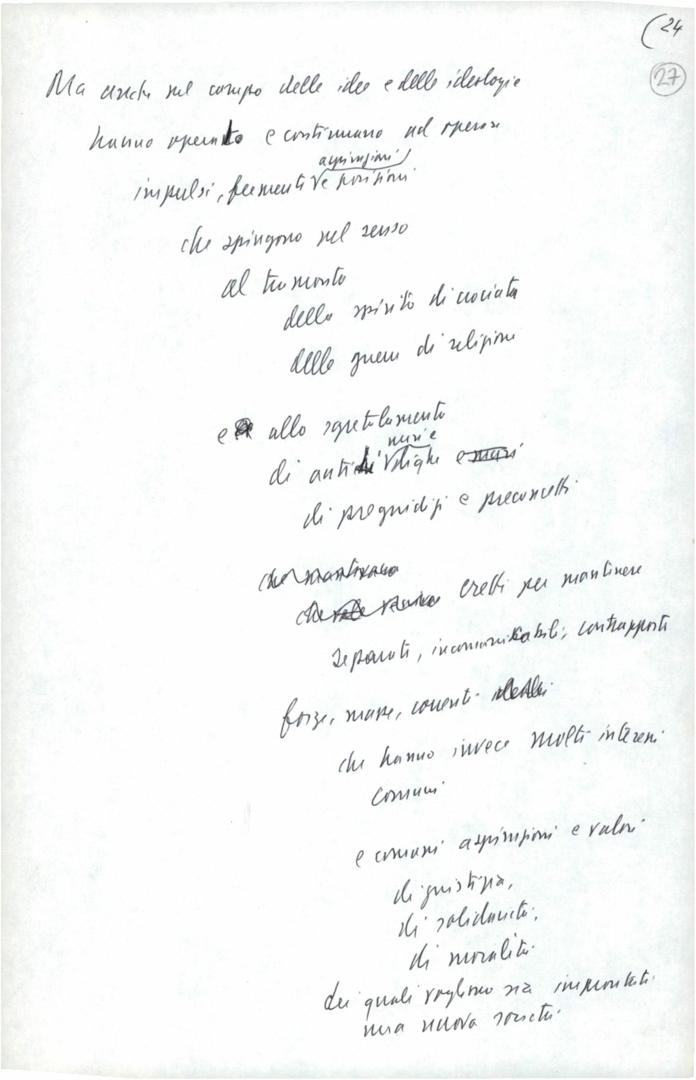 (24
27
Ma anche nel campo delle idee e delle ideologie
hanno operato e continuano ad operare
aspirazioni
impulsi, fermenti e posizioni
che spingono nel senso
al tramonto
dello spirito di crociata
delle guerre di religione
e allo sgretolamento
muri e
di antichi e muri
di pregiudizi e preconcetti
che mantenevano
eretti per mantenere
separati, incomunicabili, contrapposti
forze, masse, correnti ideali
che hanno invece molti interessi
comuni
e comuni aspirazioni e valori
di giustizia,
di solidarietà,
di moralità
dei quali vogliono sia improntata
una nuova società